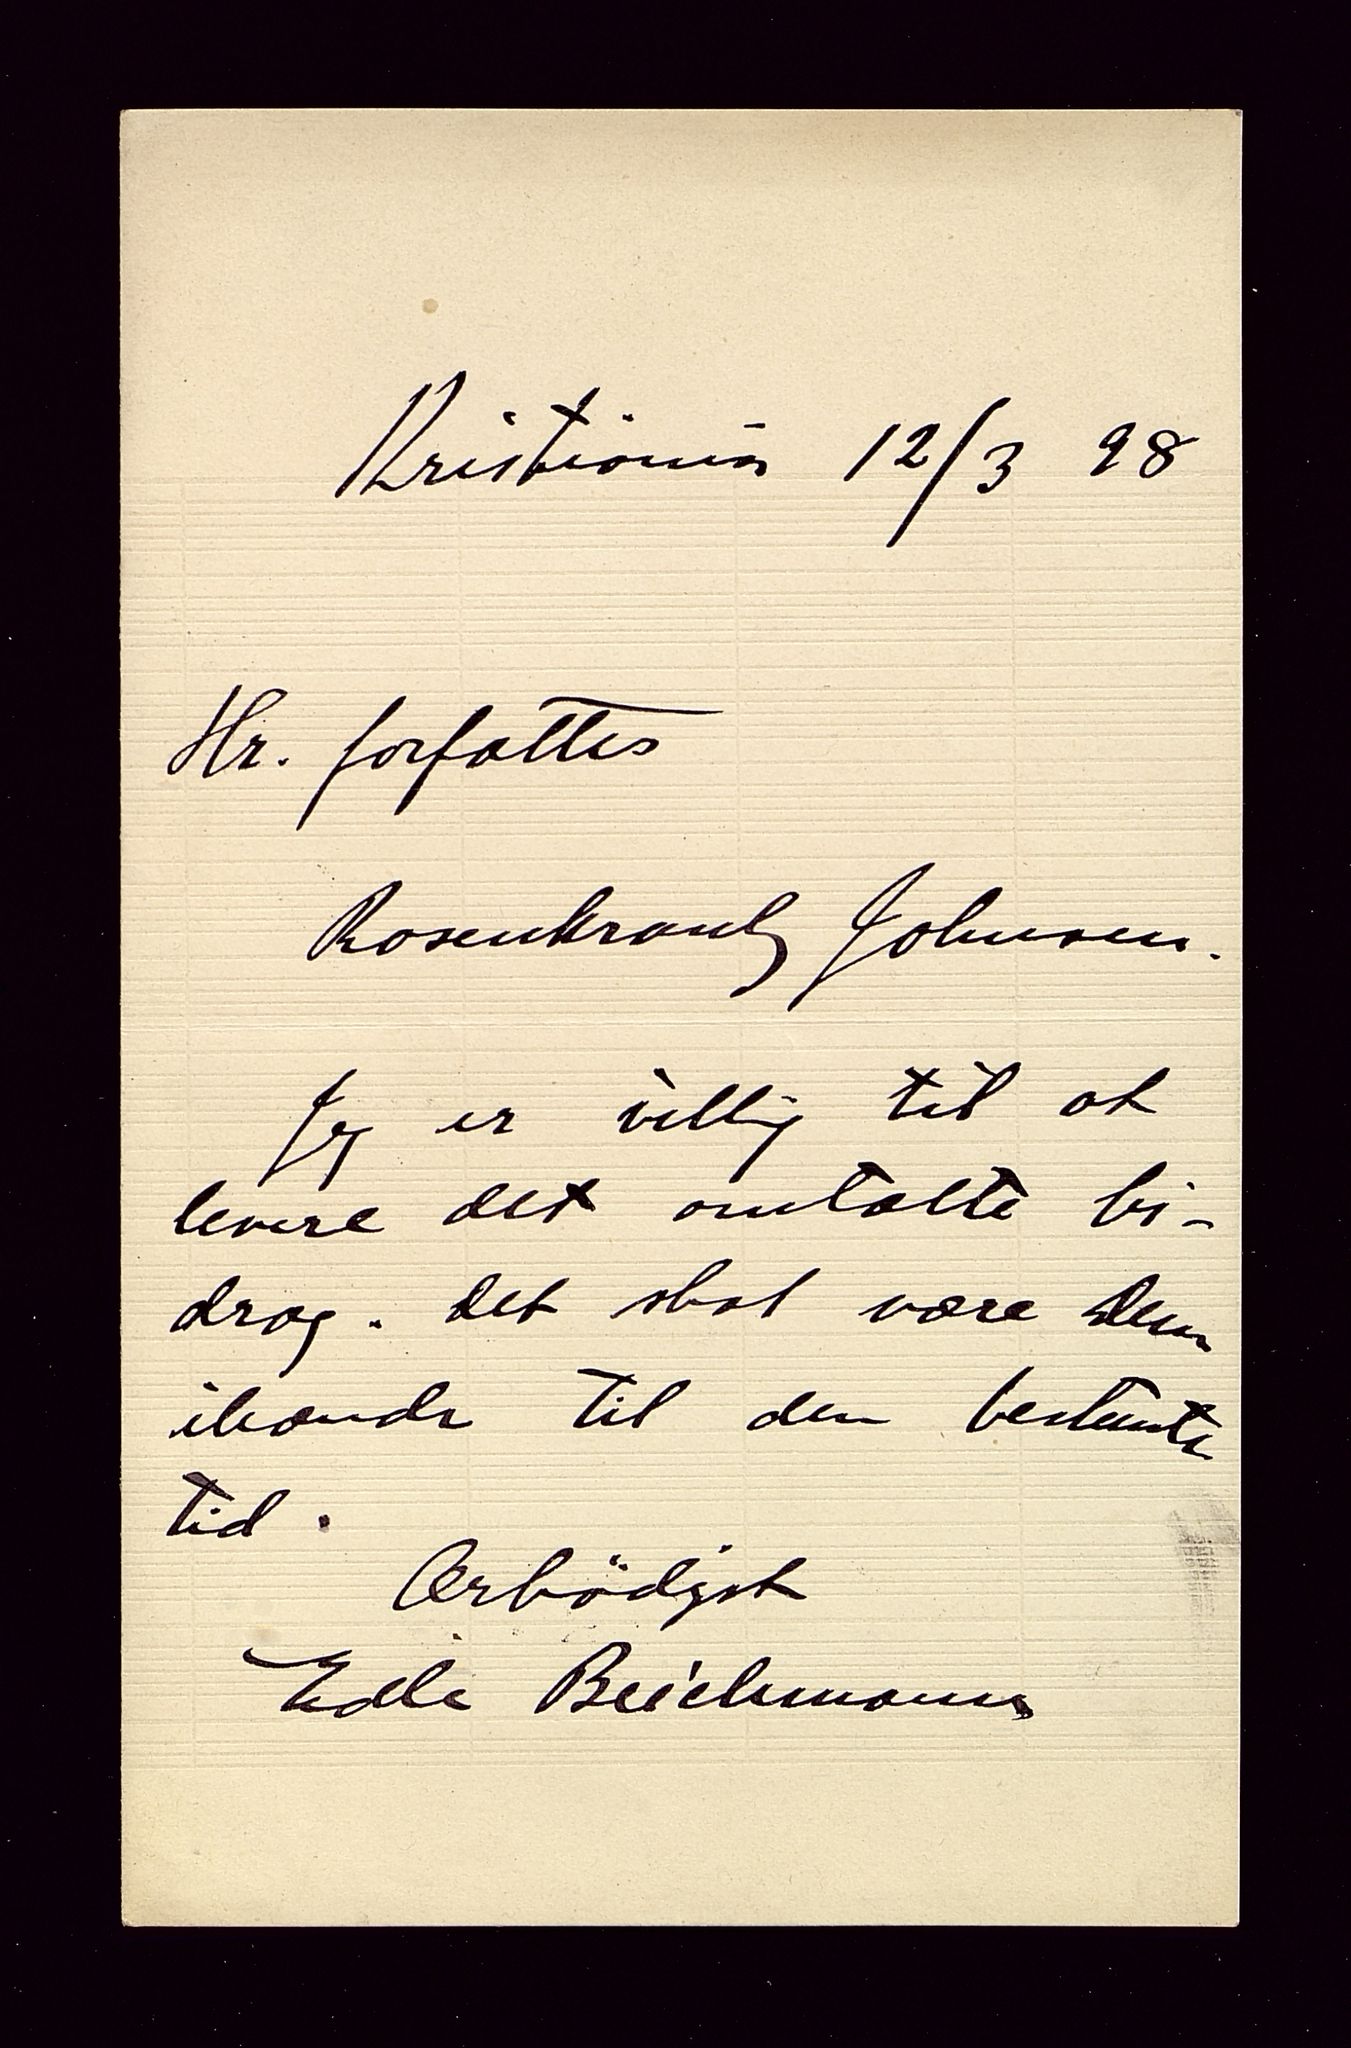 Kristiania 12/3 98
Hr. forfatter
Rosenkrantz Johnsen.
Jeg er villig til at
levere det omtalte bi-
drag. Det skal være Dem
ihænde til den bestemte
tid.
Ærbödigst
Edle Beichmann